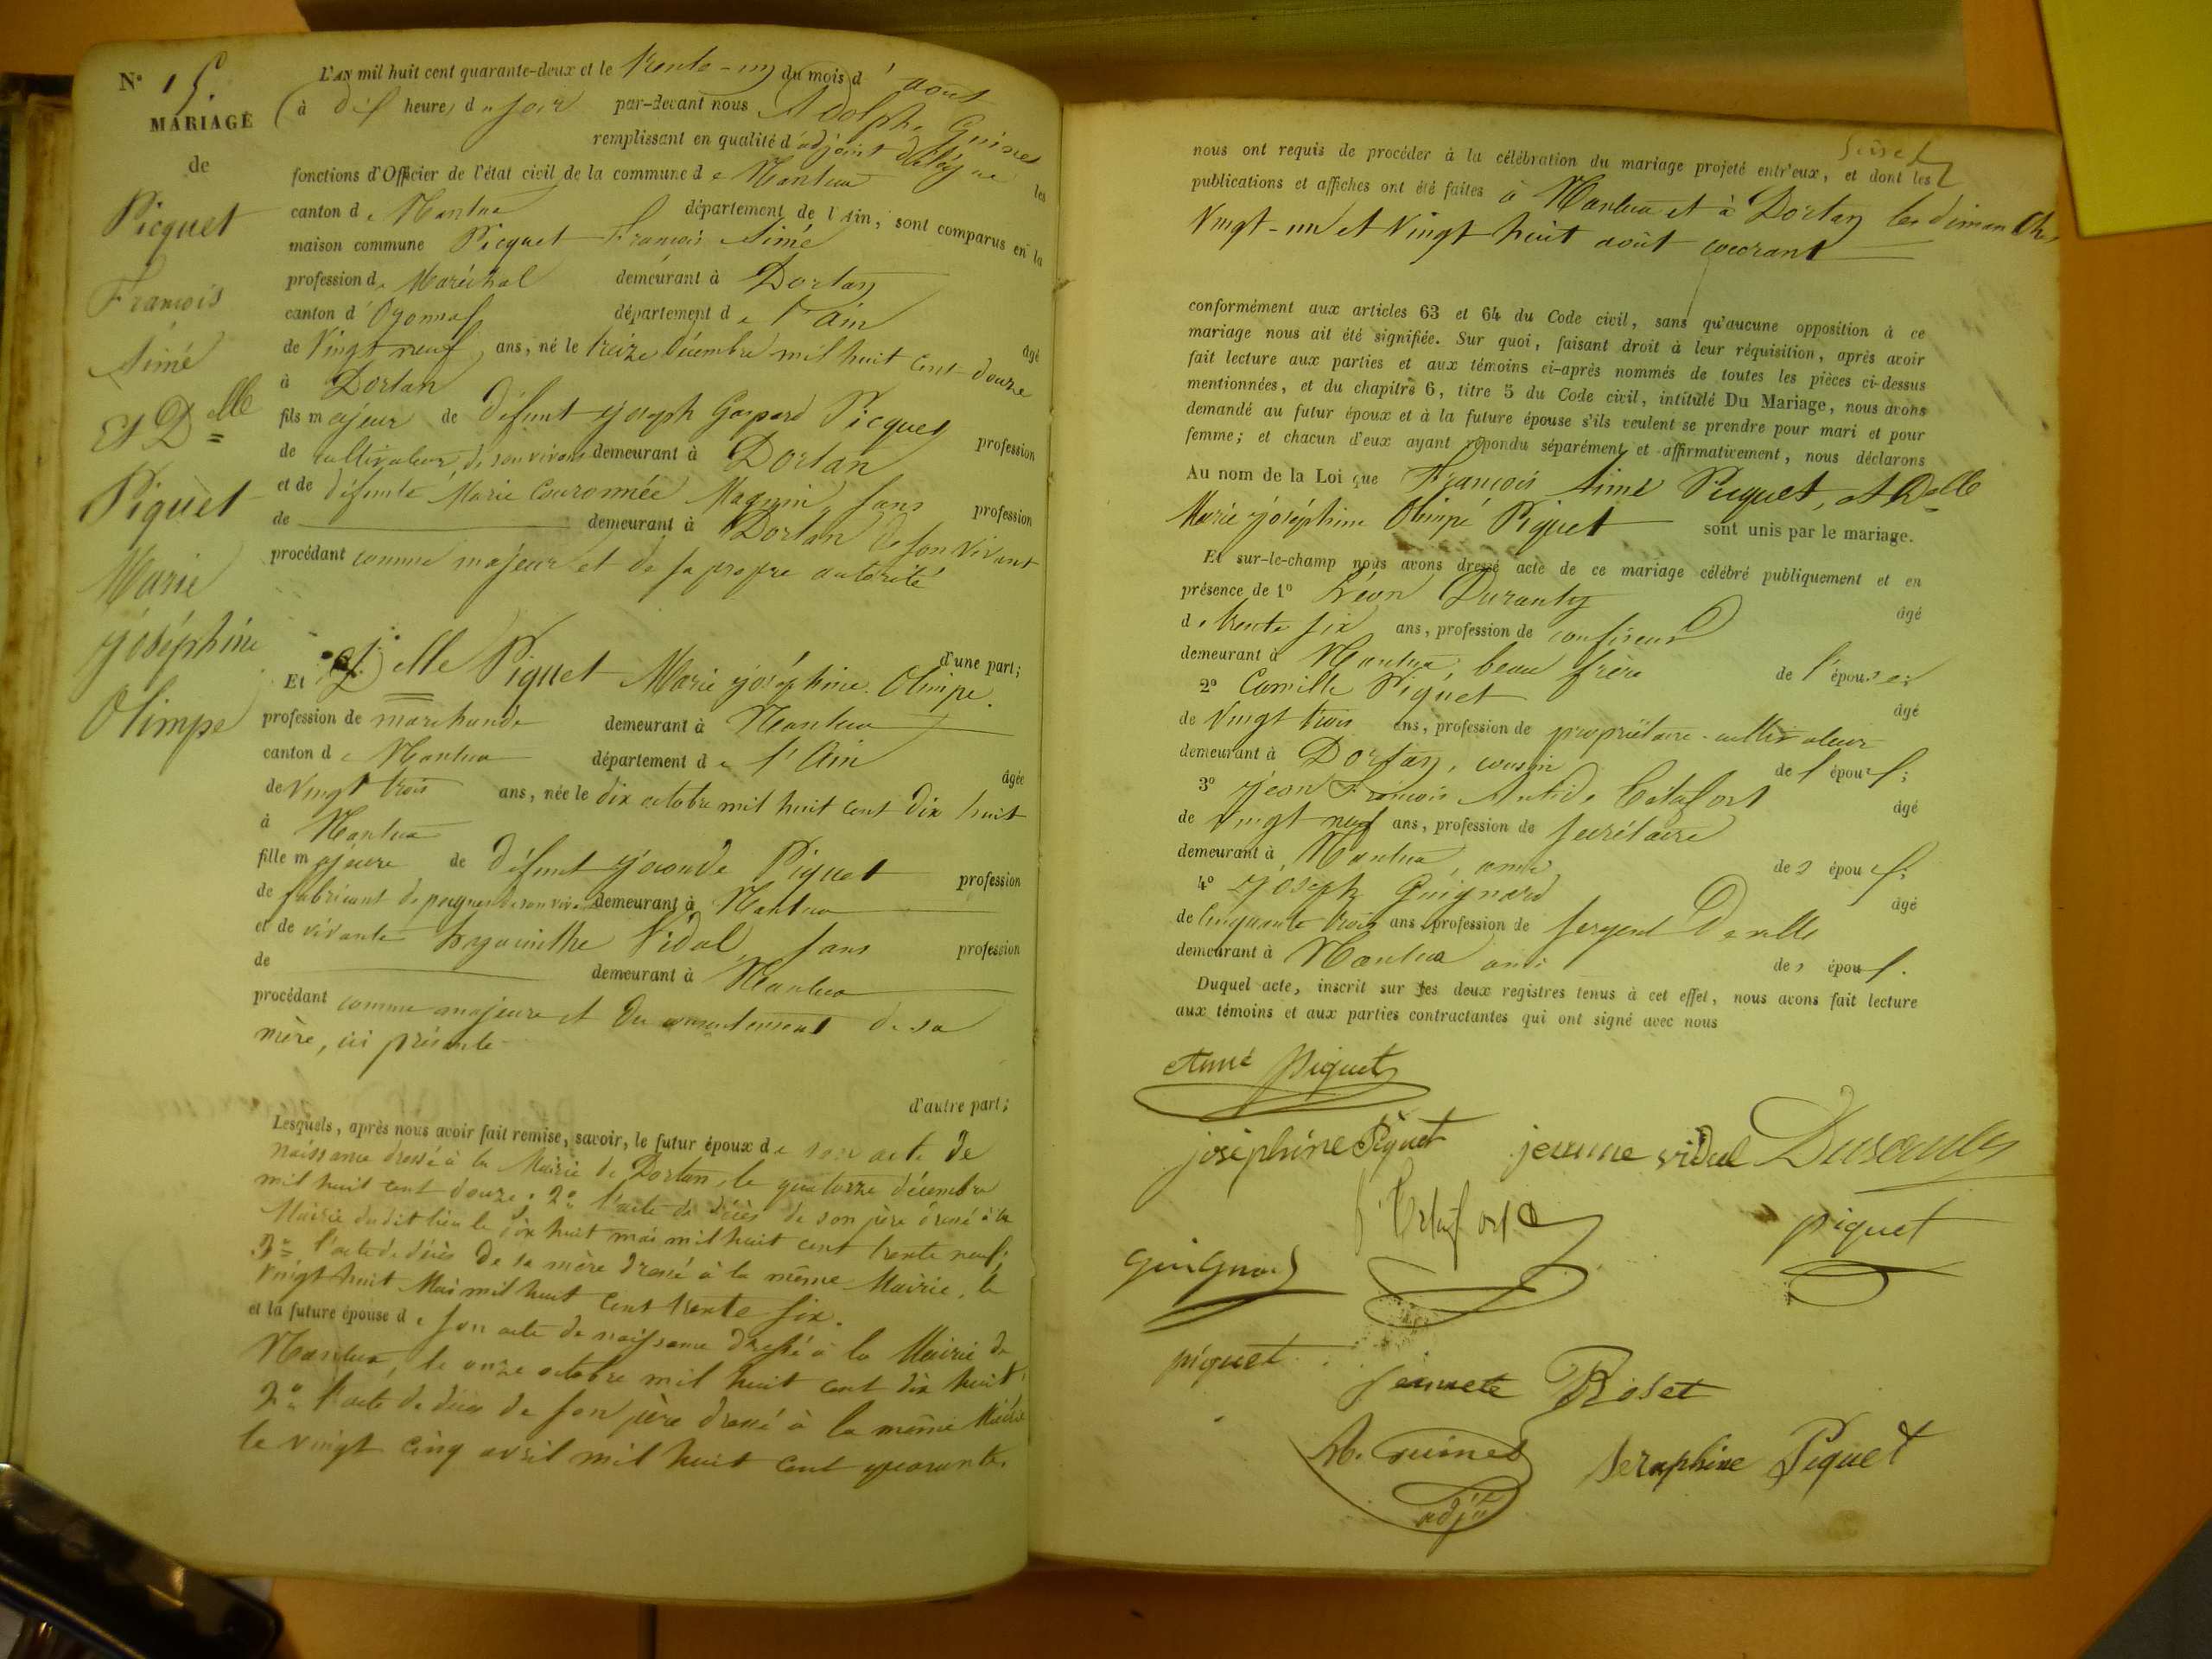 N° 15.
MARIAGE
de
Picquet
François
Aimé
Et Dlle
Piquet
Marie
joséphine
Olimpe
L'AN mil huit cent quarante-deux et le trente-un du mois d'août
à dix heures du soir par-devant nous Adolphe Guinet
remplissant en qualité d'adjoint délégué les
fonctions d'Officier de l'état civil de la commune de Nantua
canton de Nantua département de l'Ain, sont comparus en la
maison commune Picquet François Aimé
profession de Maréchal demeurant à Dortan
canton d'Oyonnax département de l'Ain âgé
de Vingt neuf ans, né le treize décembre mil huit cent douze
à Dortan
fils majeur de défunt joseph Gaspard Picquet profession
de cultivateur, de son vivant demeurant à Dortan
et de défunte Marie Couronnée Magnin, sans profession
de demeurant à Dortan de son vivant
procédant comme majeur et de sa propre autorité
d'une part;
Et Delle Piquet Marie joséphine Olimpe.
profession de marchande demeurant à Nantua
canton de Nantua département de l'Ain âgée
de Vingt trois ans, née le dix octobre mil huit cent dix huit
à Nantua
fille majeure de défunt joconde Piquet profession
de fabricant de peignes de son vivant demeurant à Nantua
et de vivante hyacinthe Vidal, sans profession
de demeurant à Nantua
procédant comme majeure et du consentement de sa
mère, ici présente
d'autre part;
Lesquels, après nous avoir fait remise, savoir, le futur époux de son acte de
naissance dressé à la Mairie de Dortan, le quatorze décembre
mil huit cent douze; 2° l'acte de décès de son père dressé à la
Mairie dudit lieu le dix huit mai mil huit cent trente neuf;
3° l'acte de décès de sa mère dressé à la même Mairie, le
Vingt huit Mai mil huit cent trente six.
et la future épouse de son acte de naissance dressé à la Mairie de
Nantua, le onze octobre mil huit cent dix huit,
2° l'acte de décès de son père dressé à la même Mairie
le vingt cinq avril mil huit cent quarante.
nous ont requis de procéder à la célébration du mariage projeté entr'eux, et dont les
publications et affiches ont été faites à Nantua et à Dortan les dimanches
Vingt-un et Vingt huit août courant
conformément aux articles 63 et 64 du Code civil, sans qu'aucune opposition à ce
mariage nous ait été signifiée. Sur quoi, faisant droit à leur réquisition, après avoir
fait lecture aux parties et aux témoins ci-après nommés de toutes les pièces ci-dessus
mentionnées, et du chapitre 6, titre 5 du Code civil, intitulé Du Mariage, nous avons
demandé au futur époux et à la future épouse s'ils veulent se prendre pour mari et pour
femme; et chacun d'eux ayant répondu séparément et affirmativement, nous déclarons
Au nom de la Loi que François Aimé Picquet, et Delle
Marie joséphine Olimpe Piquet sont unis par le mariage.
Et sur-le-champ nous avons dressé acte de ce mariage célébré publiquement et en
présence de 1° Léon Durantz âgé
de trente six ans, profession de confiseur
demeurant à Nantua, beau frère de l'épouse;
2° Camille Piquet âgé
de Vingt trois ans, profession de propriétaire-cultivateur
demeurant à Dortan, cousin de l'époux;
3° jean François Antide Catafort âgé
de Vingt neuf ans, profession de secrétaire
demeurant à Nantua, ami des époux;
4° joseph Guignard âgé
de Cinquante trois ans, profession de sergent De ville
demeurant à Nantua ami des époux.
Duquel acte, inscrit sur les deux registres tenus à cet effet, nous avons fait lecture
aux témoins et aux parties contractantes qui ont signé avec nous
Aimé Piquet
joséphine Piquet jeunne vidal
piquet
Guignard
piquet
jeannete Roset
Ad. Guinet
adjt
Seraphine Piquet